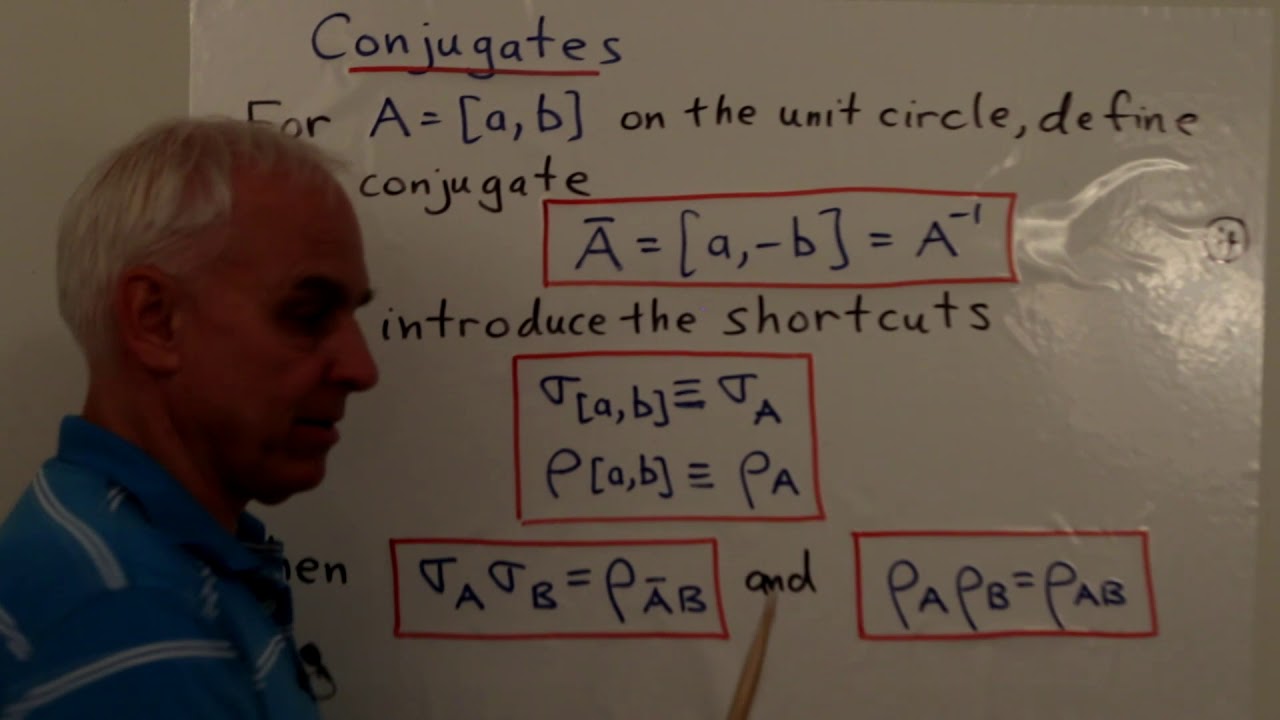 Conjugates
For A = [a, b] on the unit circle, define
conjugate
Ā = [a, -b] = A⁻¹
introduce the shortcuts
σ[a,b] ≡ σ_A
ρ[a,b] ≡ ρ_A
σ_A σ_B = ρ_ĀB and ρ_A ρ_B = ρ_AB